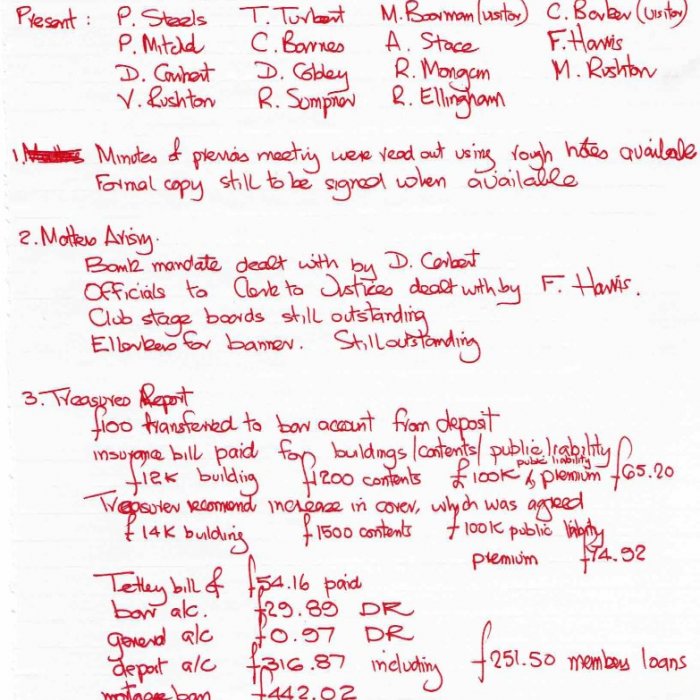 Present : P. Steels T. Turbert M. Boorman (visitor) C. Barber (visitor)
P. Mitchel C. Barnes A. Stace F. Harris
D. Corbert D. Cobley R. Mongam M. Rushton
V. Rushton R. Sumpner R. Ellingham
1. Minutes of previous meeting were read out using rough notes available
Formal copy still to be signed when available
2. Matters Arising.
Bank mandate dealt with by D. Corbert
Officials to Clerk to Justices dealt with by F. Harris.
Club stage boards still outstanding
Ellerkers for banner. Still outstanding
3. Treasures Report
£100 transferred to bar account from deposit
insurance bill paid for buildings/contents/public liability
£12K building £1200 contents £100K public liability premium £65.20
Treasurer recomend increase in cover, which was agreed
£14K building £1500 contents £100K public liability
premium £74.92
Tetley bill of £54.16 paid
bar a/c. £29.89 DR
general a/c £0.97 DR
deposit a/c £316.87 including £251.50 members loans
£442.02